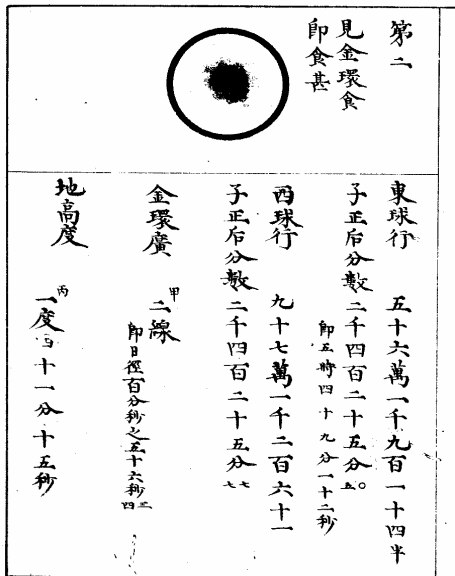 第二
見金環食
即食甚
東球行 五十六萬一千九百一十四半
子正后分數二千四百二十五分五。
即五時四十九分一十二秒
西球行 九十七萬一千二百六十一
子正后分數二千四百二十五分七七
金環廣 甲二線
即日徑百分秒之五十六秒三四
地高度 丙一度四十一分十五秒